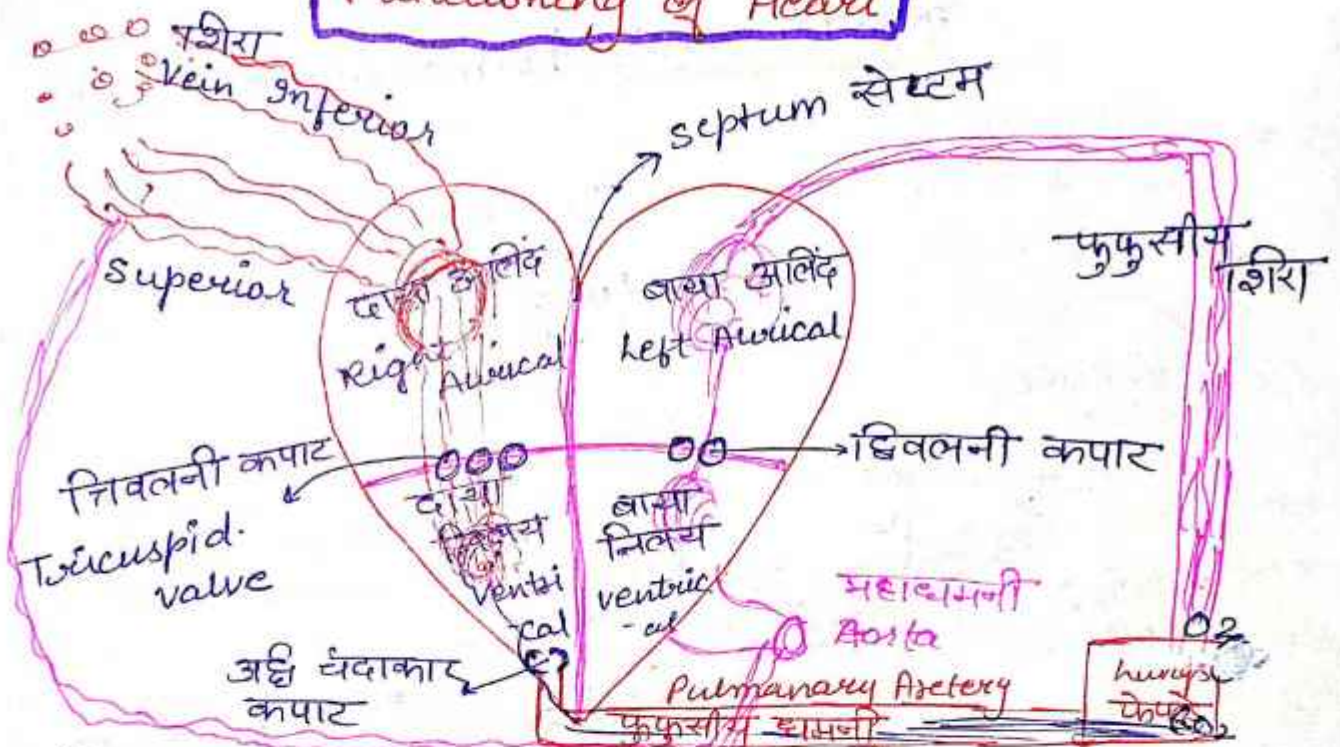 Functioning of Heart
शिरा
Vein Inferior
septum सेप्टम
Superior
दाया आलिंद
Right Aurical
बाया आलिंद
Left Aurical
फुफुसीय
शिरा
त्रिवलनी कपाट
Tricuspid.
valve
द्विवलनी कपाट
दाया
निलय
Ventri
-cal
बाया
निलय
ventric
-al
महाधमनी
Aorta
अर्ध चंदाकार
कपाट
Pulmanary Aretery
फुफुसीय धमनी
O2
lungs
फेफड़े
CO2